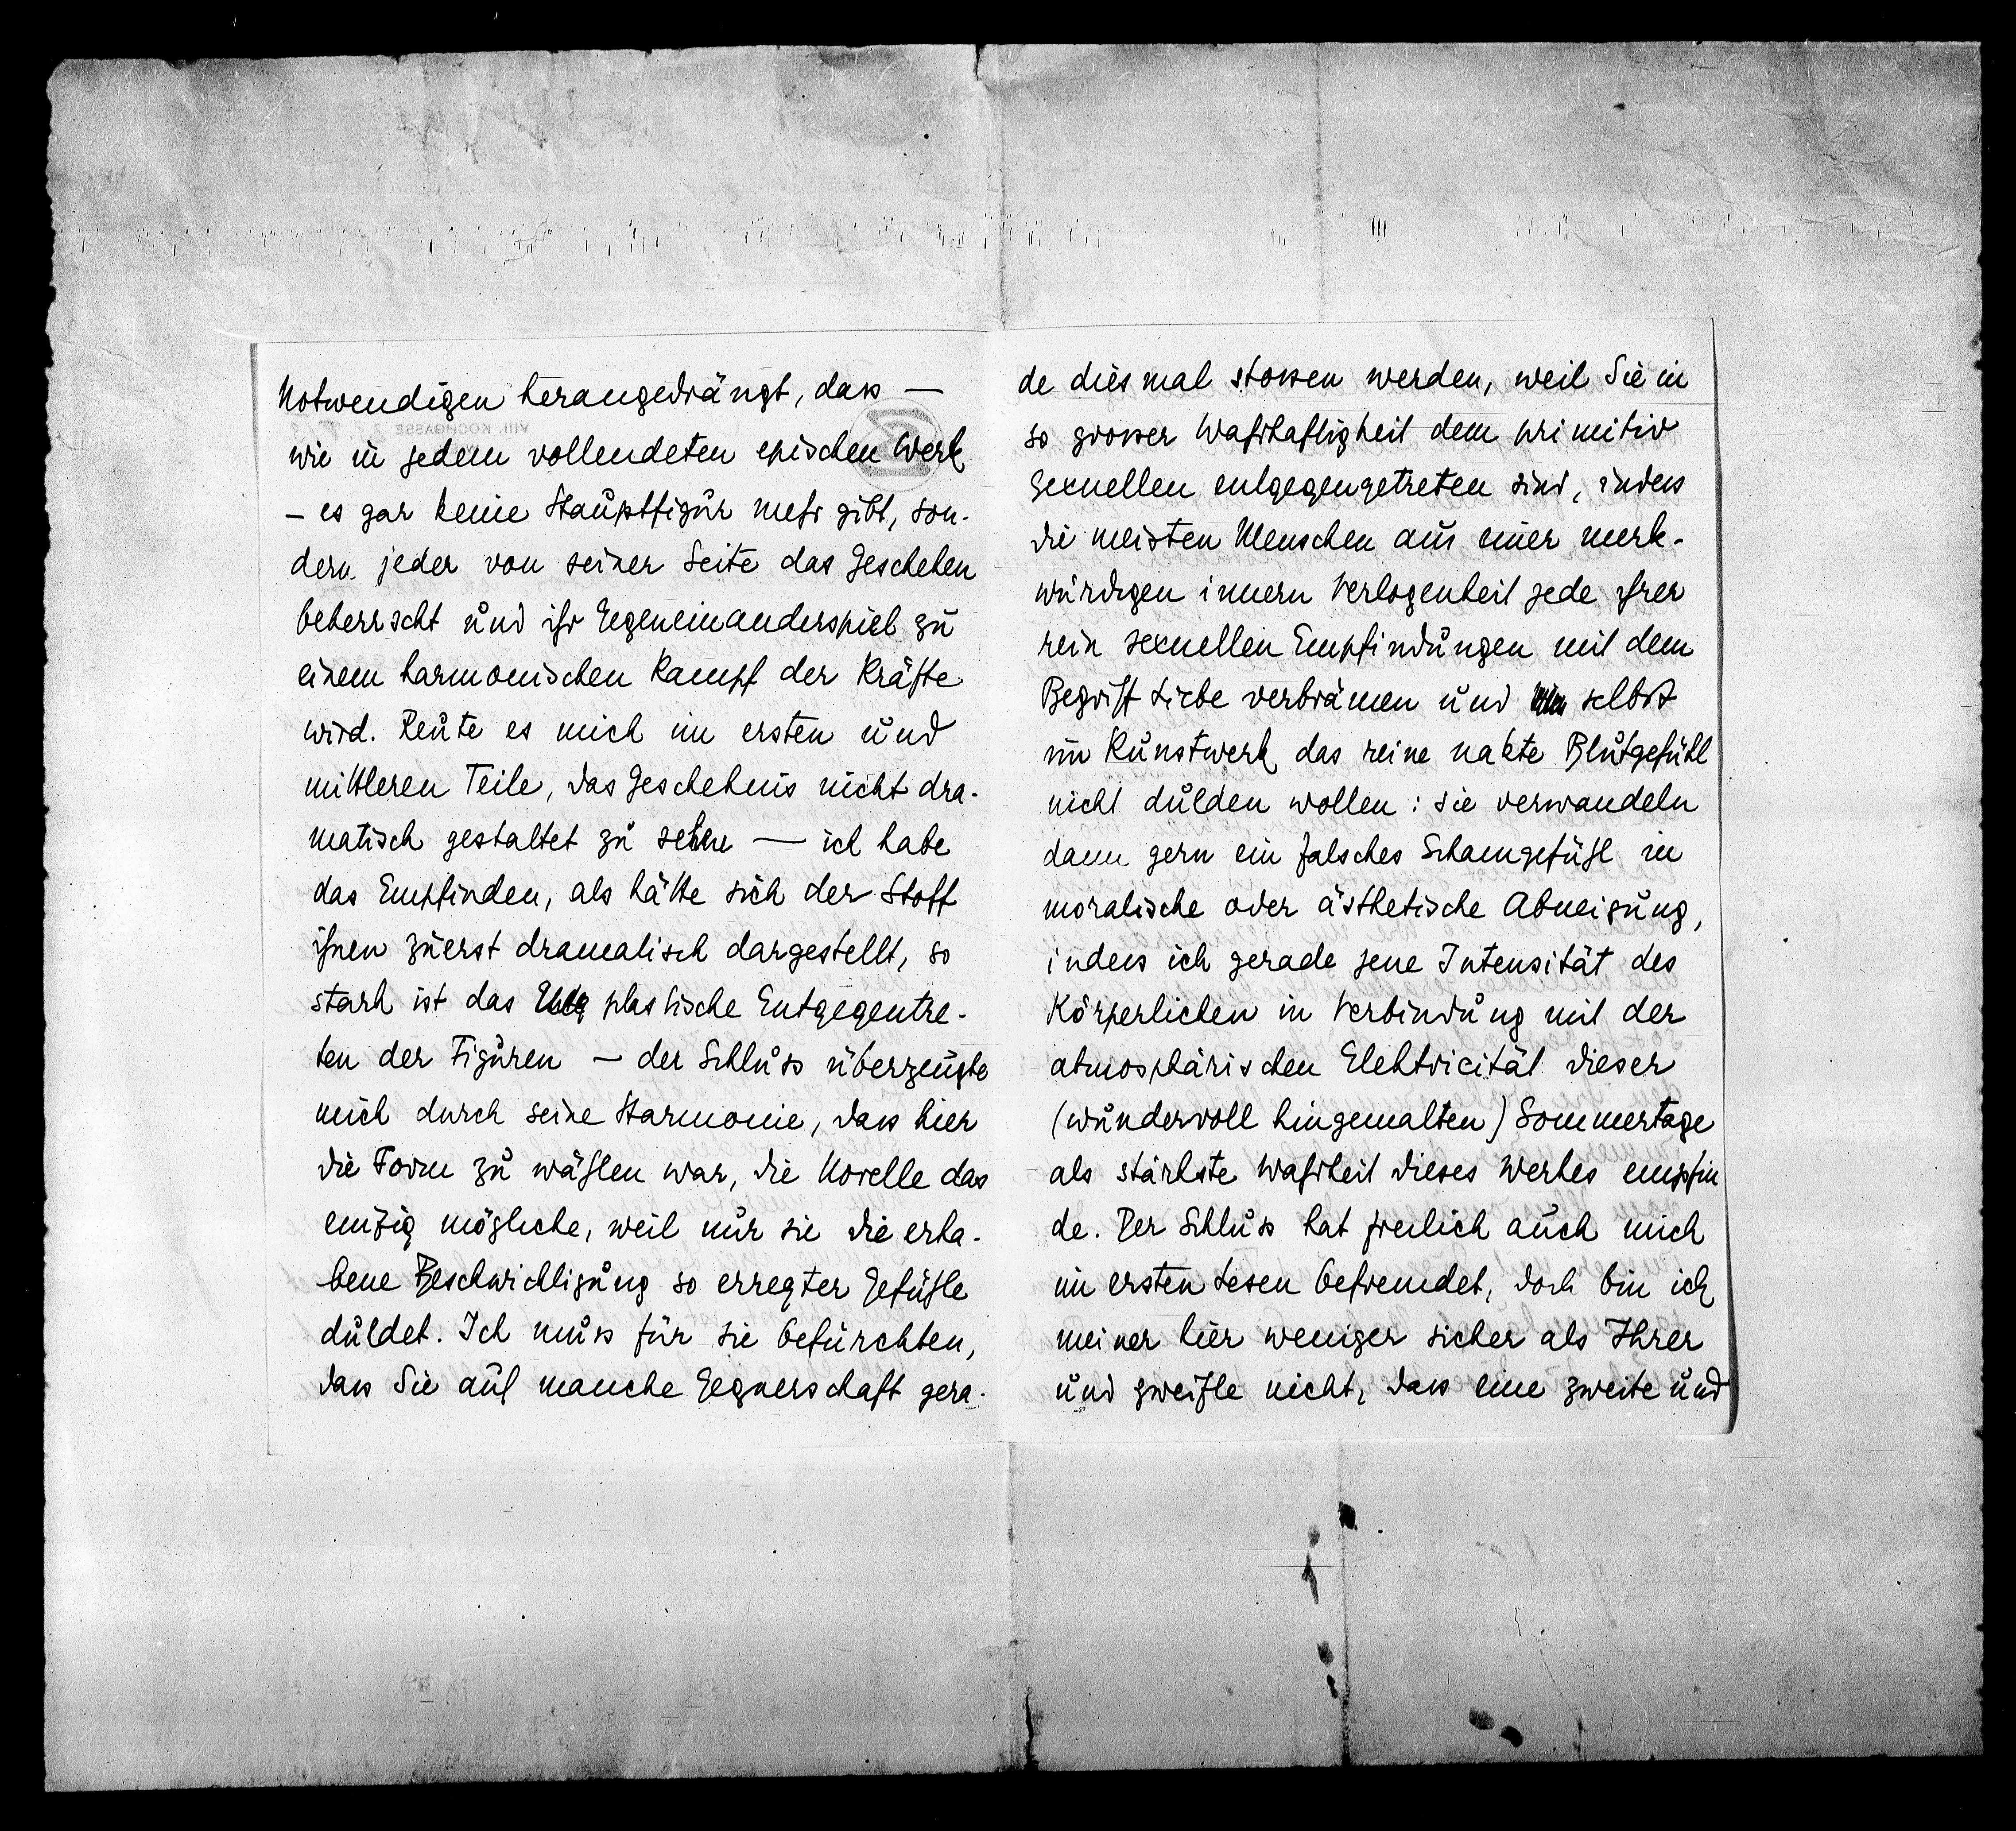 Notwendigen herangedrängt, dass —
wie in jedem vollendeten epischen Werk
– es gar keine Hauptfigur mehr gibt, son-
dern jeder von seiner Seite das Geschehen
beherrscht und ihr Gegeneinanderspiel zu
einem harmonischen Kampf der Kräfte
wird. Reute es mich im ersten und
mittleren Teile, das Geschehnis nicht dra-
matisch gestaltet zu sehen — ich habe
das Empfinden, als hätte sich der Stoff
ihnen zuerst dramatisch dargestellt, so
stark ist das plastische Entgegentre-
ten der Figuren – der Schluss überzeugte
mich durch seine Harmonie, dass hier
die Form zu wählen war, die Novelle das
einzig mögliche, weil nur sie die erha-
bene Beschwichtigung so erregter Gefühle
duldet. Ich muss für sie befürchten,
dass Sie auf manche Gegnerschaft gera-
de diesmal stossen werden, weil Sie in
so grosser Wahrhaftigkeit dem primitiv
Sexuellen entgegengetreten sind, indess
die meisten Menschen aus einer merk-
würdigen innern Verlogenheit jede ihrer
rein sexuellen Empfindungen mit dem
Begriff Liebe verbrämen und selbst
im Kunstwerk das reine nakte Blutgefühl
nicht dulden wollen: sie verwandeln
dann gern ein falsches Schamgefühl in
moralische oder ästhetische Abneigung,
indess ich gerade jene Intensität des
Körperlichen in Verbindung mit der
atmosphärischen Elektricität dieser
(wundervoll hingemalten) Sommertage
als stärkste Wahrheit dieses Werkes empfin
de. Der Schluss hat freilich auch mich
im ersten Lesen befremdet, doch bin ich
meiner hier weniger sicher als Ihrer
und zweifle nicht, dass eine zweite und
VIII. KOCHGASSE